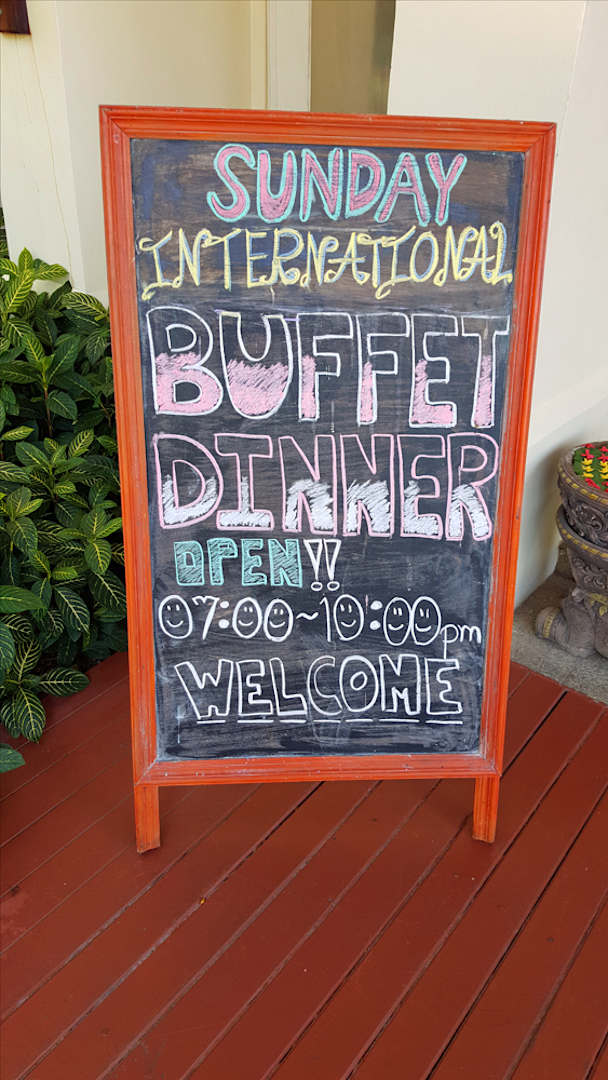 SUNDAY
INTERNATIONAL
BUFFET
DINNER
OPEN!!
07:00~10:00pm
WELCOME